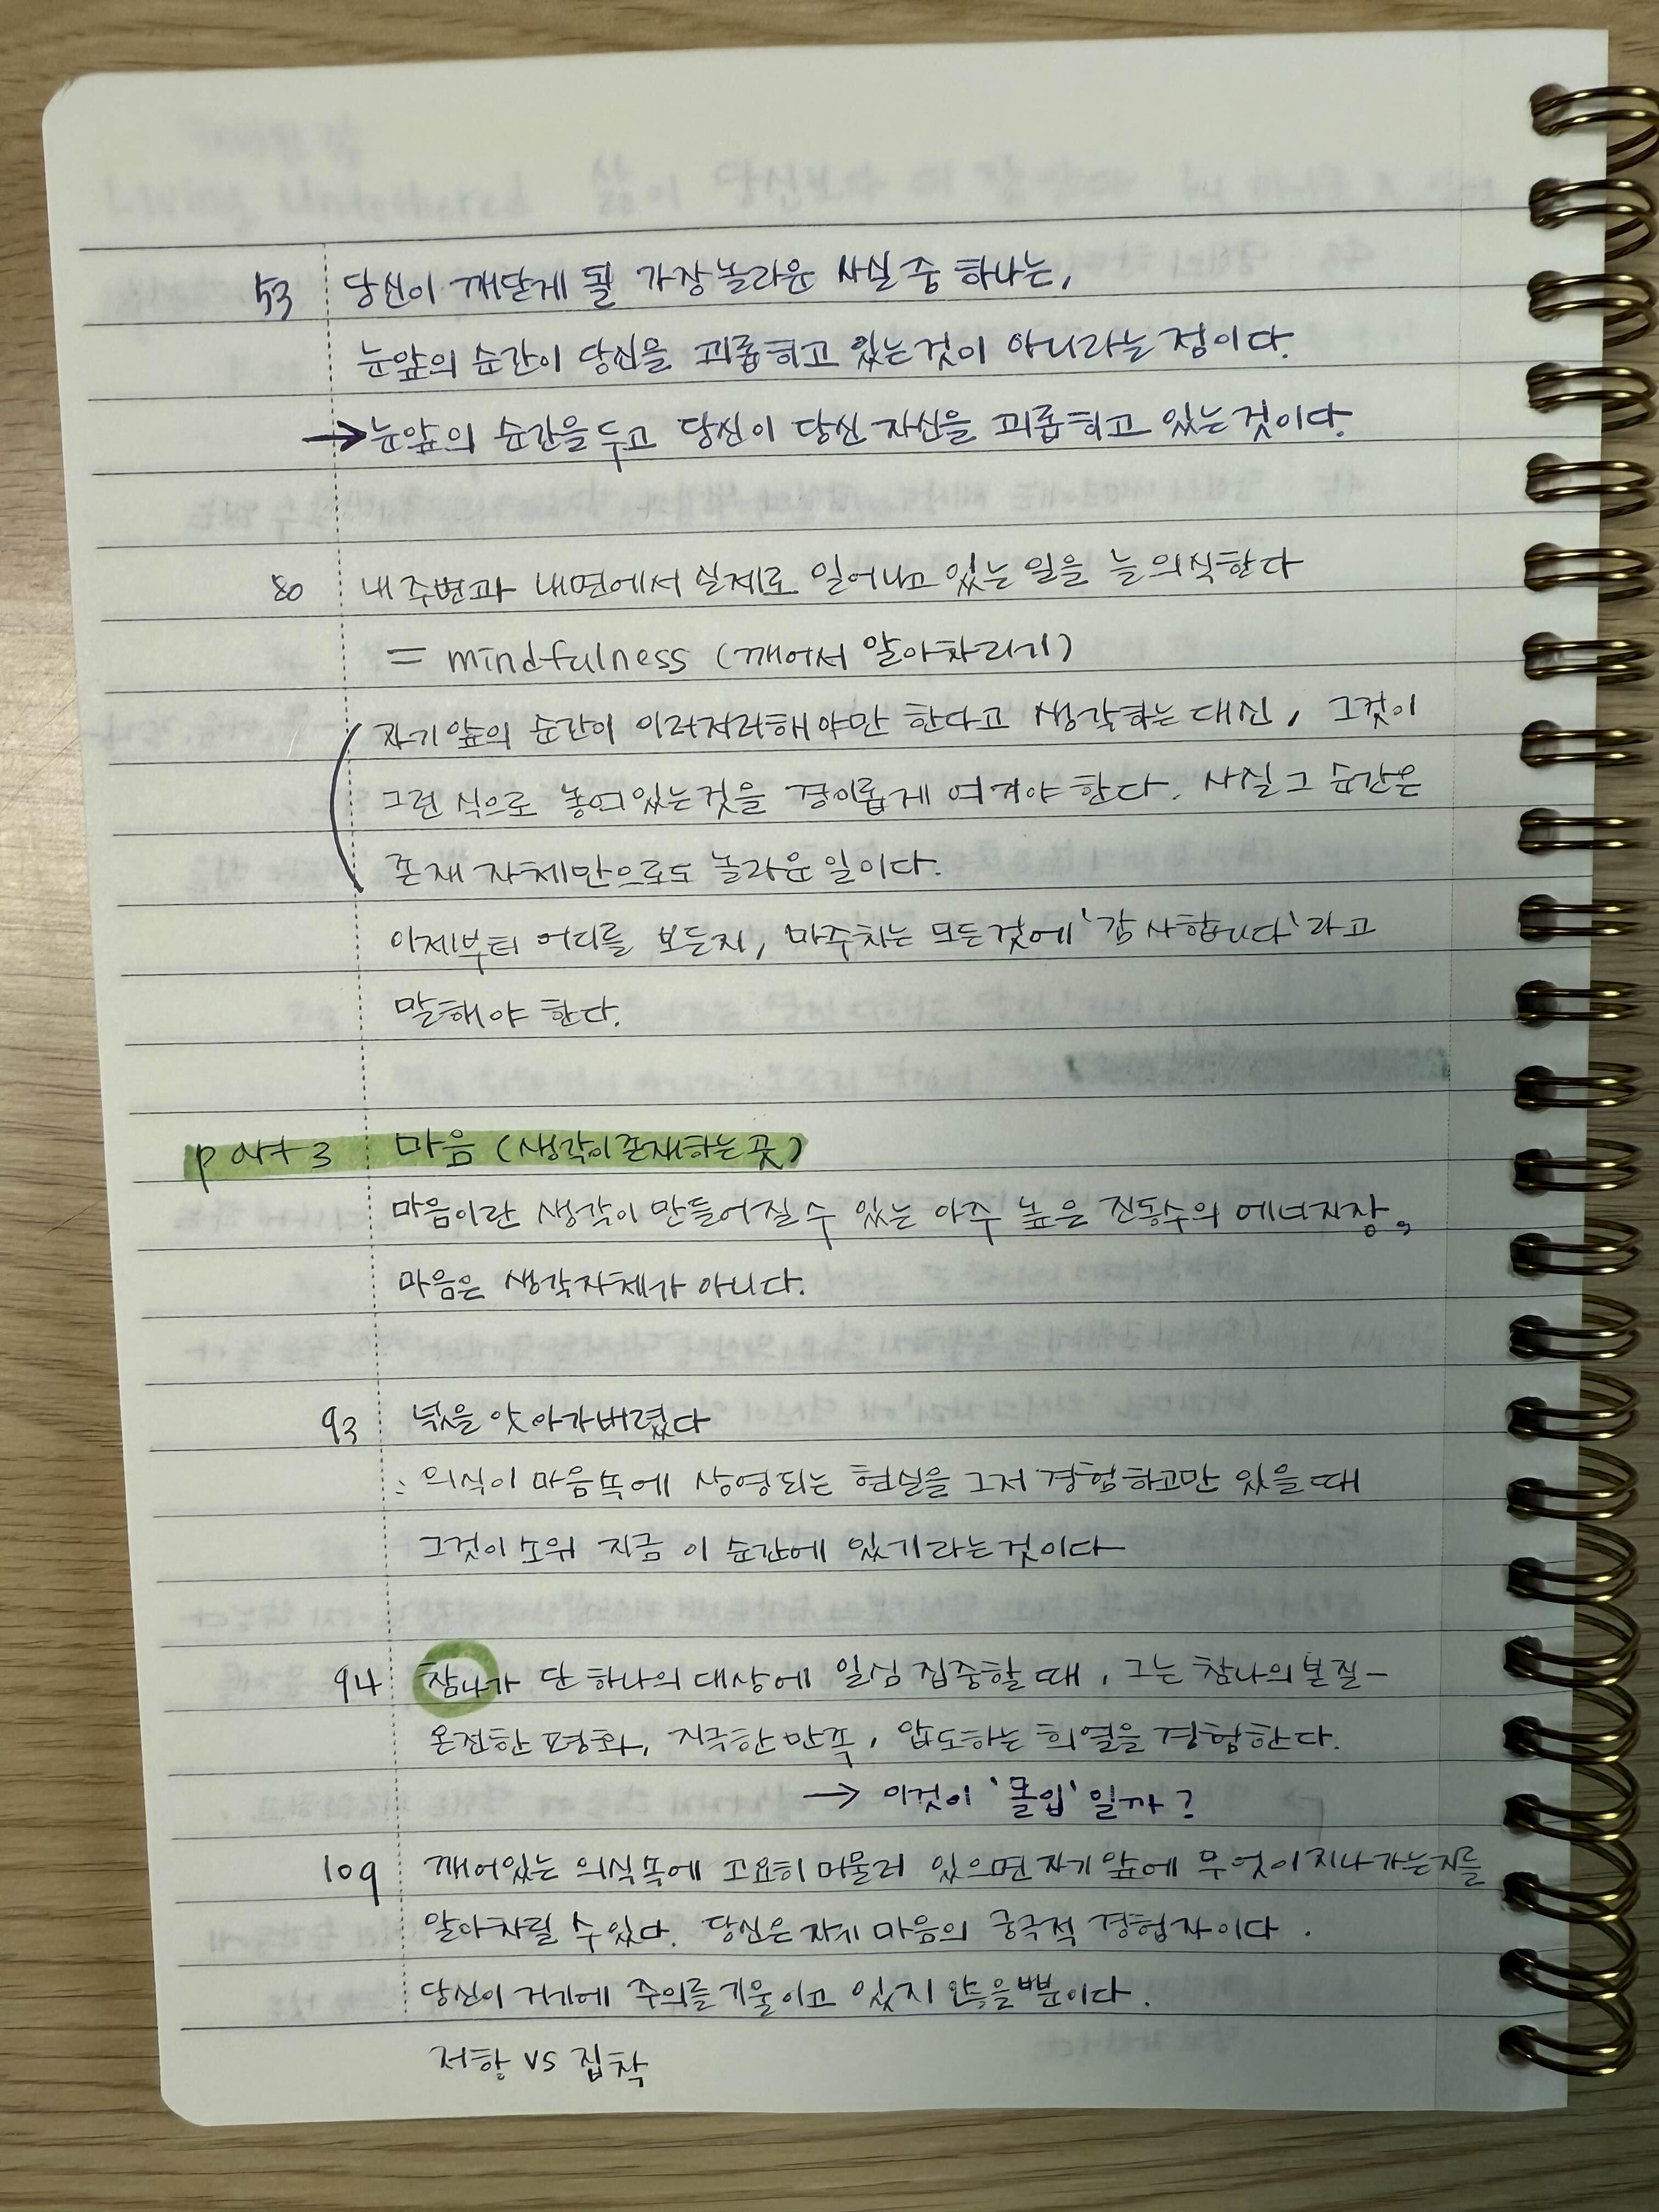 53 당신이 깨닫게 될 가장 놀라운 사실 중 하나는,
눈앞의 순간이 당신을 괴롭히고 있는 것이 아니라는 점이다.
→ 눈앞의 순간을 두고 당신이 당신 자신을 괴롭히고 있는 것이다.
80 내 주변과 내면에서 실제로 일어나고 있는 일을 늘 의식한다
= mindfulness (깨어서 알아차리기)
자기 앞의 순간이 이러저러해야만 한다고 생각하는 대신, 그것이
그런 식으로 놓여있는 것을 경이롭게 여겨야 한다. 사실 그 순간은
존재 자체만으로도 놀라운 일이다.
이제부터 어디를 보든지, 마주치는 모든 것에 '감사합니다'라고
말해야 한다.
part 3 마음 (생각이 존재하는 곳)
마음이란 생각이 만들어질 수 있는 아주 높은 진동수의 에너지장.
마음은 생각 자체가 아니다.
93 넋을 앗아가버렸다
: 의식이 마음속에 상영되는 현실을 그저 경험하고만 있을 때
그것이 소위 지금 이 순간에 있기라는 것이다
94 참나가 단 하나의 대상에 일심 집중할 때, 그는 참나의 본질-
온전한 평화, 지극한 만족, 압도하는 희열을 경험한다.
→ 이것이 '몰입'일까?
109 깨어있는 의식 속에 고요히 머물러 있으면 자기 앞에 무엇이 지나가는지를
알아차릴 수 있다. 당신은 자기 마음의 궁극적 경험자이다.
당신이 거기에 주의를 기울이고 있지 않을 뿐이다.
저항 vs 집착